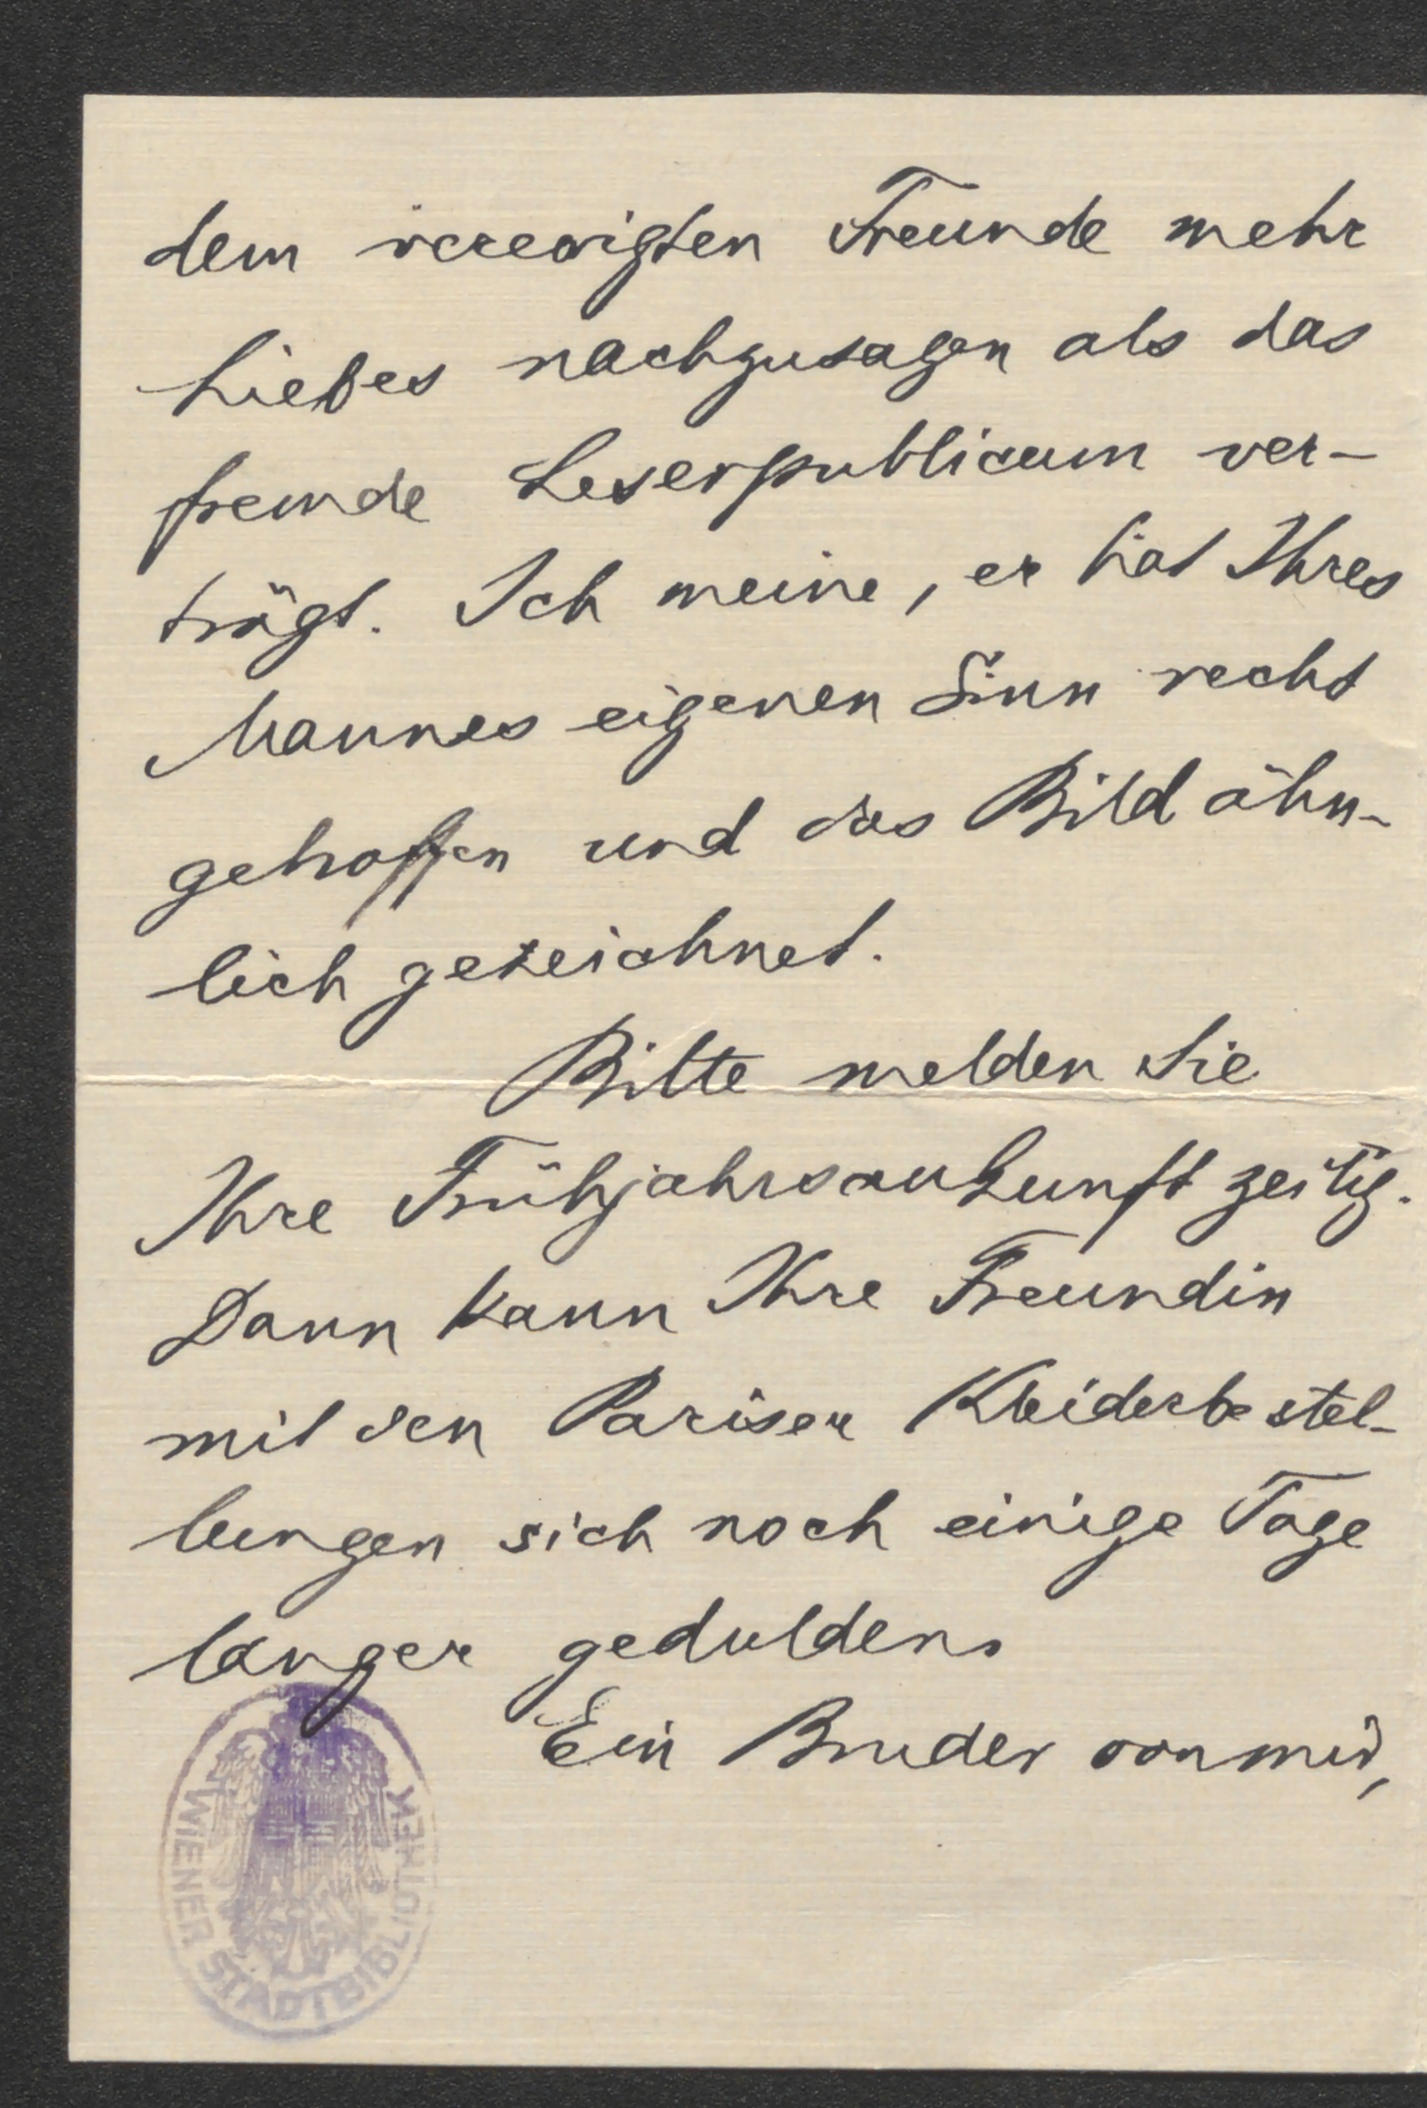 dem verewigten Freunde mehr
Liebes nachzusagen als das
fremde Leserpublicum ver-
trägt. Ich meine, er hat Ihres
Mannes eigenen Sinn recht
getroffen und das Bild ähn-
lich gezeichnet.
Bitte melden Sie
Ihre Frühjahrsankunft zeitig.
Dann kann Ihre Freundin
mit den Pariser Kleiderbestel-
lungen sich noch einige Tage
länger gedulden.
Ein Bruder von mir,
WIENER STADTBIBLIOTHEK